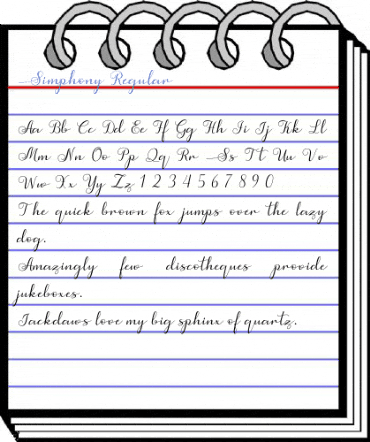 Simphony Regular
Aa Bb Cc Dd Ee Ff Gg Hh Ii Jj Kk Ll
Mm Nn Oo Pp Qq Rr Ss Tt Uu Vv
Ww Xx Yy Zz 1 2 3 4 5 6 7 8 9 0
The quick brown fox jumps over the lazy
dog.
Amazingly few discotheques provide
jukeboxes.
Jackdaws love my big sphinx of quartz.